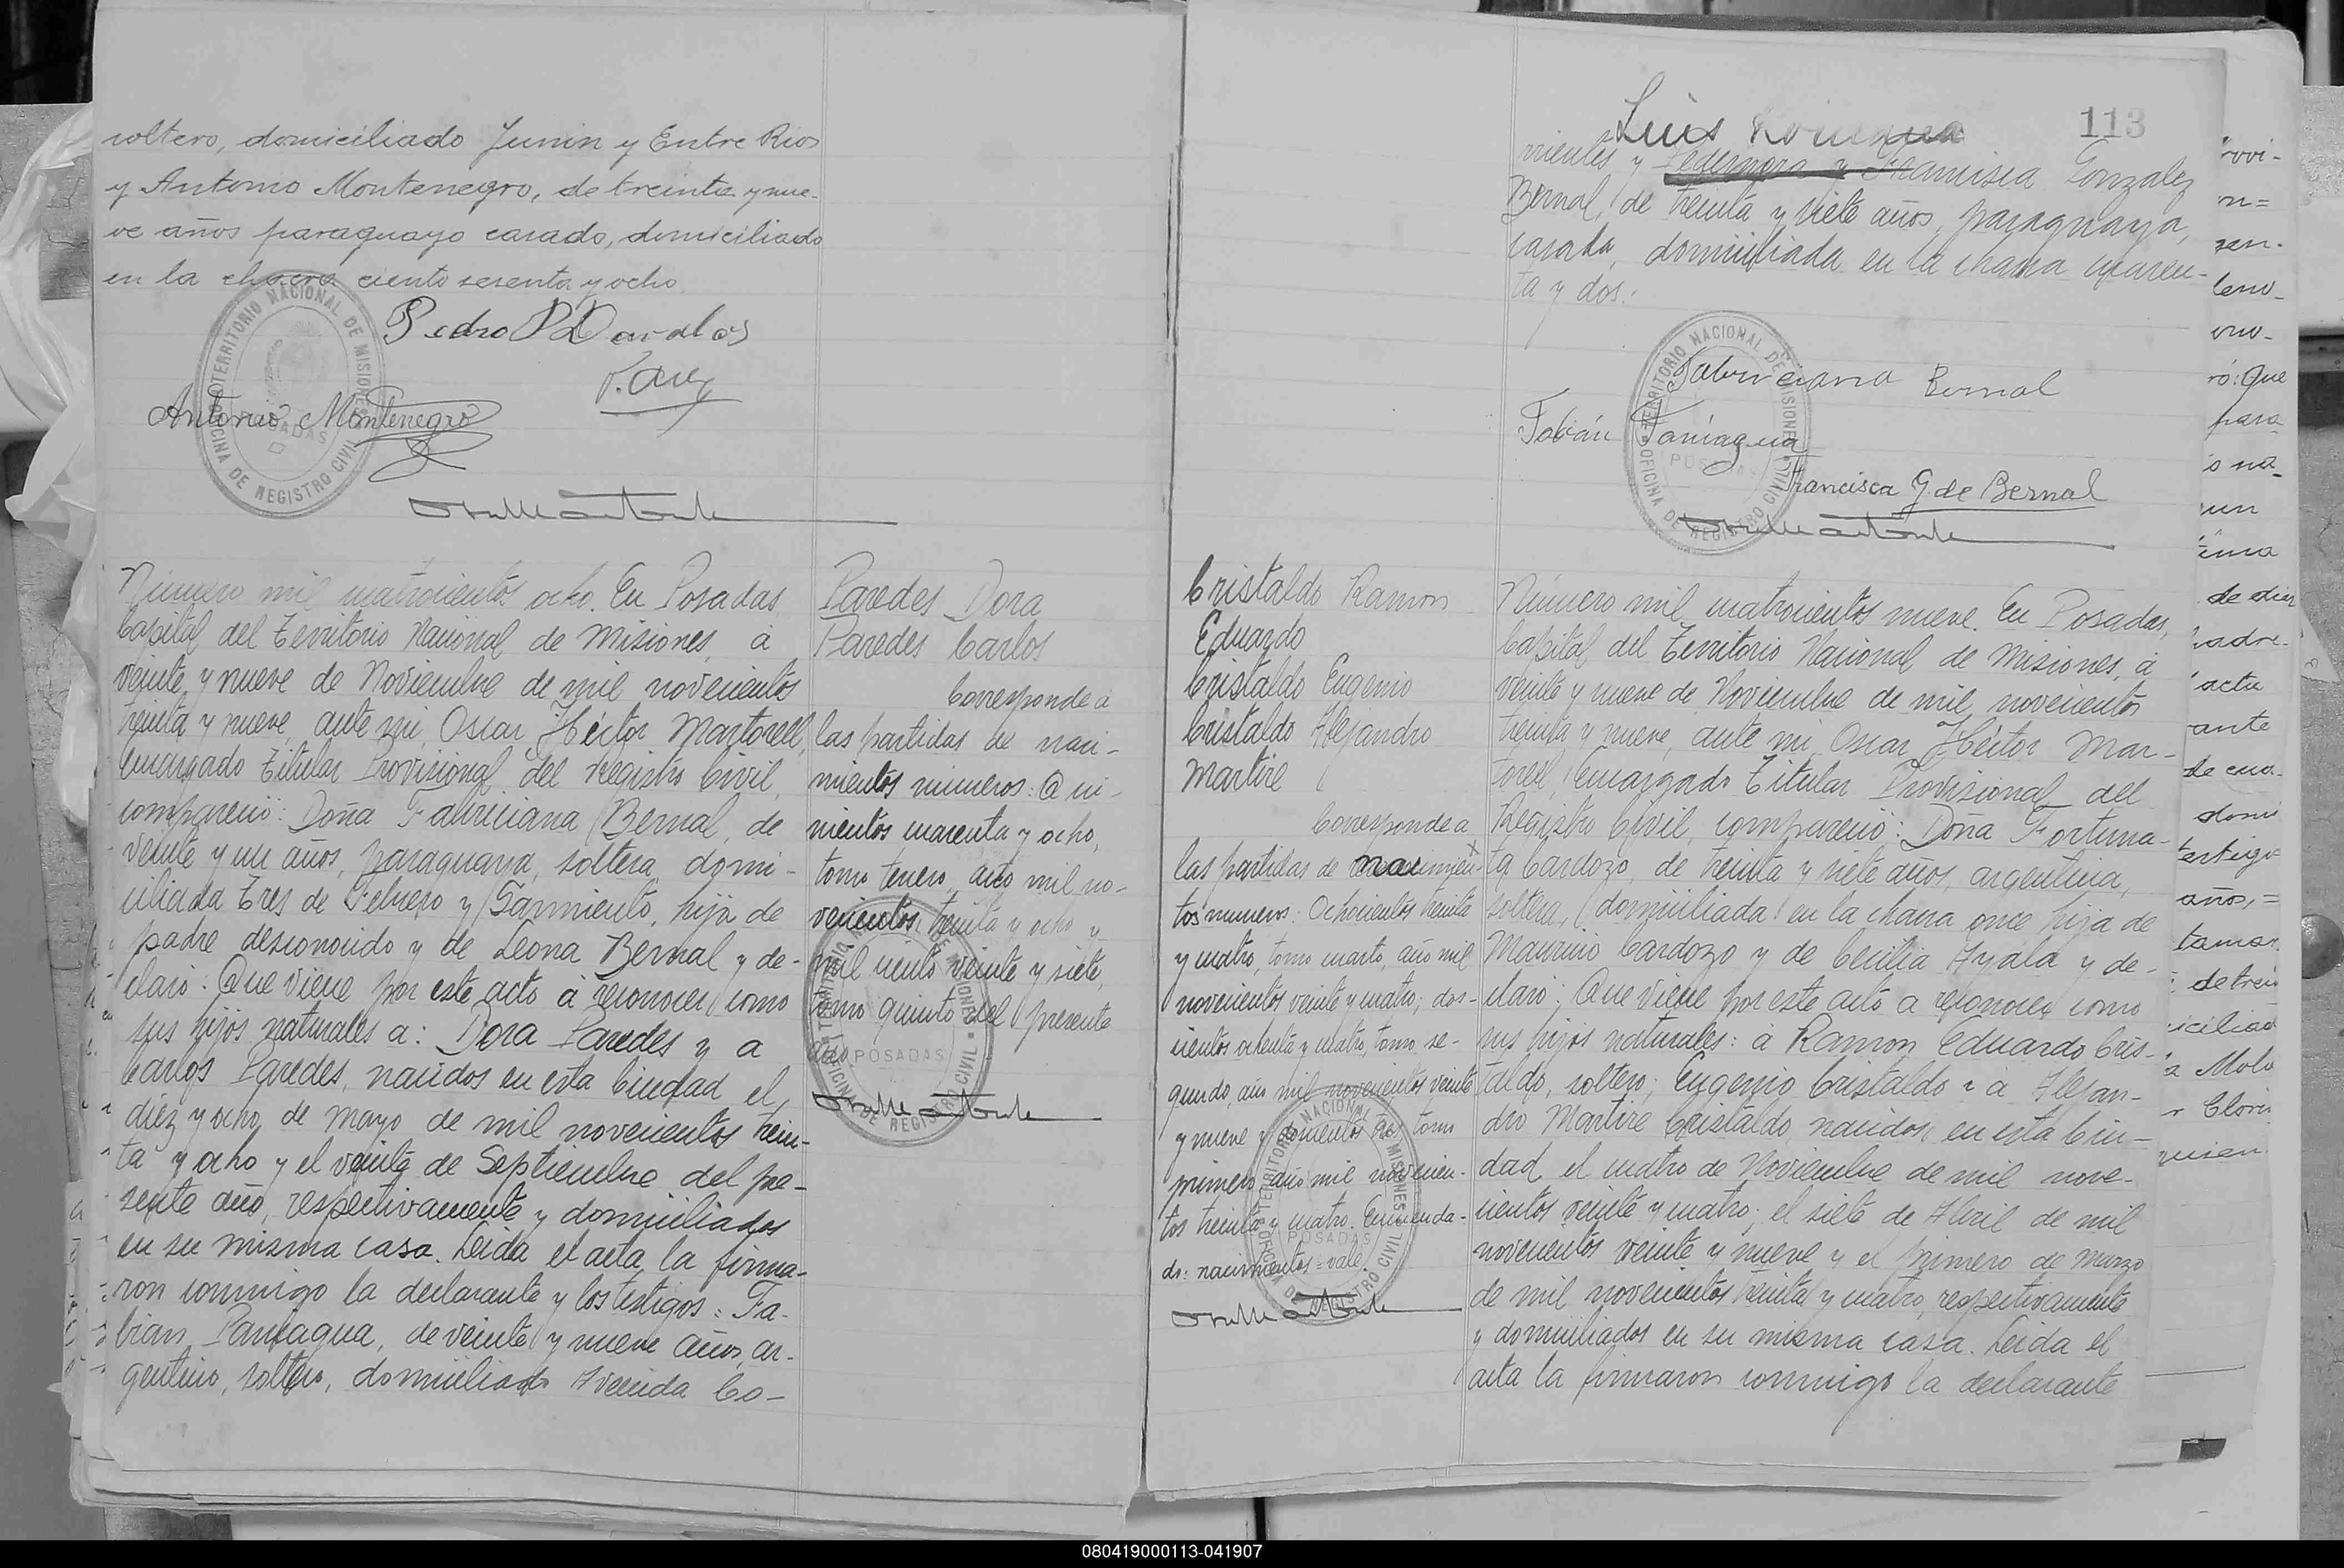 soltero, domiciliado Junin y Entre Rios
y Antonio Montenegro, de treinta y nue-
ve años paraguayo casado, domiciliado
en la chacra ciento sesenta y ocho.
TERRITORIO NACIONAL DE MISIONES
OFICINA DE REGISTRO CIVIL
POSADAS
Antonio Montenegro
Número mil cuatrocientos ocho. En Posadas
Capital del Territorio Nacional de Misiones, á
veinte y nueve de Noviembre de mil novecientos
treinta y nueve, ante mi, Oscar Héctor Martorell,
Encargado Titular Provisional del Registro Civil,
compareció: Doña Fabriciana Bernal, de
veinte y un años, paraguaya, soltera, domi-
ciliada Tres de Febrero y Sarmiento, hija de
padre desconocido y de Leona Bernal y de-
claró: Que viene por este acto á reconocer como
sus hijos naturales a: Dora Paredes y a
Carlos Paredes, nacidos en esta Ciudad el
diez y ocho de Mayo de mil novecientos trein-
ta y ocho y el veinte de Septiembre del pre-
sente año, respectivamente y domiciliados
en su misma casa. Leida el acta, la firma-
ron conmigo la declarante y los testigos: Fa-
bian Paniagua, de veinte y nueve años, ar-
gentino, soltero, domiciliado Avenida Co-
Paredes Dora
Paredes Carlos
Corresponde á
las partidas de naci-
mientos números: Qui-
nientos cuarenta y ocho,
tomo tercero, año mil no-
vecientos treinta y ocho y
mil ciento veinte y siete,
tomo quinto del presente
año
TERRITORIO NACIONAL DE MISIONES
OFICINA DE REGISTRO CIVIL
POSADAS
113
Luis
rrientes y Ledesma y Francisca Gonzalez
Bernal, de treinta y siete años, paraguaya,
casada, domiciliada en la chacra cuaren-
ta y dos.
TERRITORIO NACIONAL DE MISIONES
OFICINA DE REGISTRO CIVIL
POSADAS
Fabriciana Bernal
Fabián Paniagua
Francisca G. de Bernal
Cristaldo Ramon
Eduardo
Cristaldo Eugenio
Cristaldo Alejandro
Martire
Corresponde a
las partidas de nacimien-
tos numeros: Ochocientos treinta
y cuatro, tomo cuarto, año mil
novecientos veinte y cuatro; dos-
cientos ochenta y cuatro, tomo se-
gundo, año mil novecientos veinte
y nueve y doscientos tres, tomo
primero, año mil novecien-
tos treinta y cuatro. Enmenda-
do: nacimientos = vale.
TERRITORIO NACIONAL DE MISIONES
OFICINA DE REGISTRO CIVIL
POSADAS
Número mil cuatrocientos nueve. En Posadas,
Capital del Territorio Nacional de Misiones, á
veinte y nueve de Noviembre de mil novecientos
treinta y nueve, ante mi, Oscar Héctor Mar-
torell, Encargado Titular Provisional del
Registro Civil, compareció: Doña Fortuna-
ta Cardozo, de treinta y siete años, argentina,
soltera, domiciliada en la chacra once, hija de
Mauricio Cardozo y de Cecilia Ayala y de-
claró: Que viene por este acto a reconocer como
sus hijos naturales: á Ramon Eduardo Cris-
taldo, soltero; Eugenio Cristaldo y á Alejan-
dro Martire Cristaldo, nacidos en esta Ciu-
dad, el cuatro de Noviembre de mil nove-
cientos veinte y cuatro; el siete de Abril de mil
novecientos veinte y nueve y el primero de Marzo
de mil novecientos treinta y cuatro, respectivamente
y domiciliados en su misma casa. Leida el
acta la firmaron conmigo la declarante
ró: Que
para
un
de diez
padre
acta
ante
de cua-
domi
testigo
años, =
de trei
iciliad
080419000113-041907